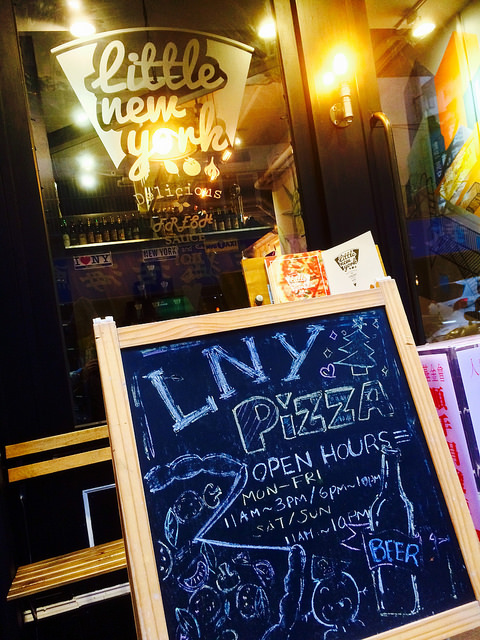 little
new
york
Delicious
FRESH
SAUCE
I ♥ NY
NEW YORK
little
new
york
LNY
PIZZA
OPEN HOURS
MON-FRI
11AM~3PM/6PM~10PM
SAT/SUN
11AM~10PM
BEER